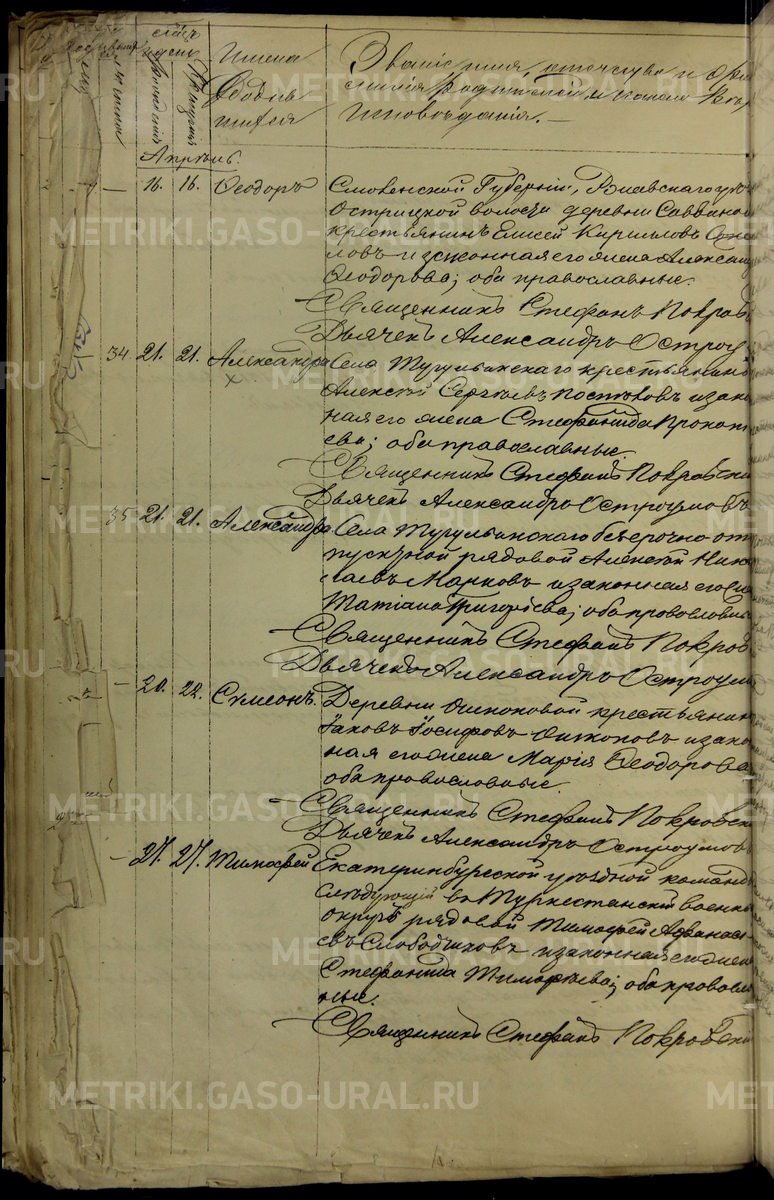 Имена
Родив
шихся
Званіе имя, отчество и фами
лія родителей и какого вѣро
исповѣданія. —
Апрѣль.
— 16. 16. Ѳеодоръ Смоленской Губерніи,
волости деревни
крестьянинъ Елисей Кириловъ
ловъ и законная его жена Александ
Ѳеодорова; оба православные.
Священникъ Стефанъ Покров
Дьячекъ Александръ Остроу
34 21. 21. Александра Села Тугулымскаго крестьянинъ
Алексѣй Сергѣевъ и зако
ная его жена Стефанида Прокоп
ева; оба православные.
Священникъ Стефанъ Покровскі
Дьячекъ Александръ Остроумовъ
35 21. 21. Александра Села Тугулымскаго безсрочно от
пускной рядовой Алексѣй Нико
лаевъ Марковъ и законная его
Татіана Григоріева; оба православны
Священникъ Стефанъ Покров
Дьячекъ Александръ Остроум
— 20. 22. Сѵмеонъ. Деревни крестьянин
Іаковъ Іосифовъ и зако
ная его жена Марія Ѳеодорова
оба православные.
Священникъ Стефанъ Покровскі
Дьячекъ Александръ Остроумовъ
— 27. 27. Тимофей Екатеринбургской уѣздной команд
слѣдующій въ Туркестанскій военны
округъ рядовой Тимофей Афанась
евъ Слободчиковъ и законная его жен
Стефанида Тимофѣева; оба правосла
ные.
Священникъ Стефанъ Покровскі
METRIKI.GASO-URAL.RU